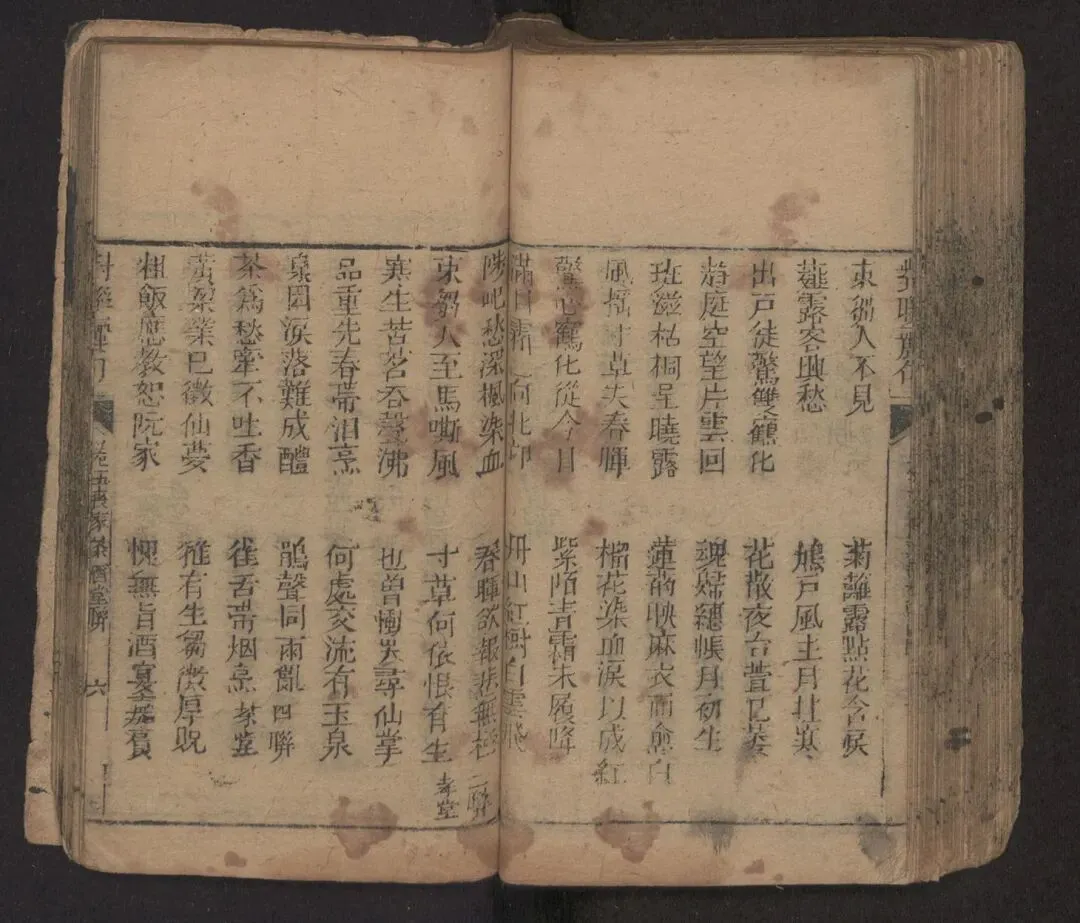 東芻人不見　菊蘸露點花含淚
薤露客興愁　鳩戶風土月壯寒
出戶徒驚雙鶴化　花散夜台萱已萎
趨庭空望片雲回　魂歸繐帳月初生
班滋枯桐呈曉露　蓮的映麻衣而愈白
風搖寸草失春暉　榴花染血淚以成紅
驚心鶴化從今日　紫陌青霜未履降
滿目霜　向北卬　丹山紅樹白雲飛
陟屺愁深楓染血　春暉欲報悲無極　二聯
束芻人至馬嘶風　寸草何依恨有生　孝堂
寒生苦茗吞聲沸　也曾慟哭尋仙掌
品重先春帶泪烹　何處交流有玉泉
梟回淚落難成醴　鵑聲同雨亂　四聯
茶為愁牽不吐香　雀舌帶烟烹　孝堂
黃粱業已徵仙夢　雖有生芻微厚貺
粗飯應教恕阮家　愧無旨酒宴嘉賓
卷五喪家茶酒堂聯　六